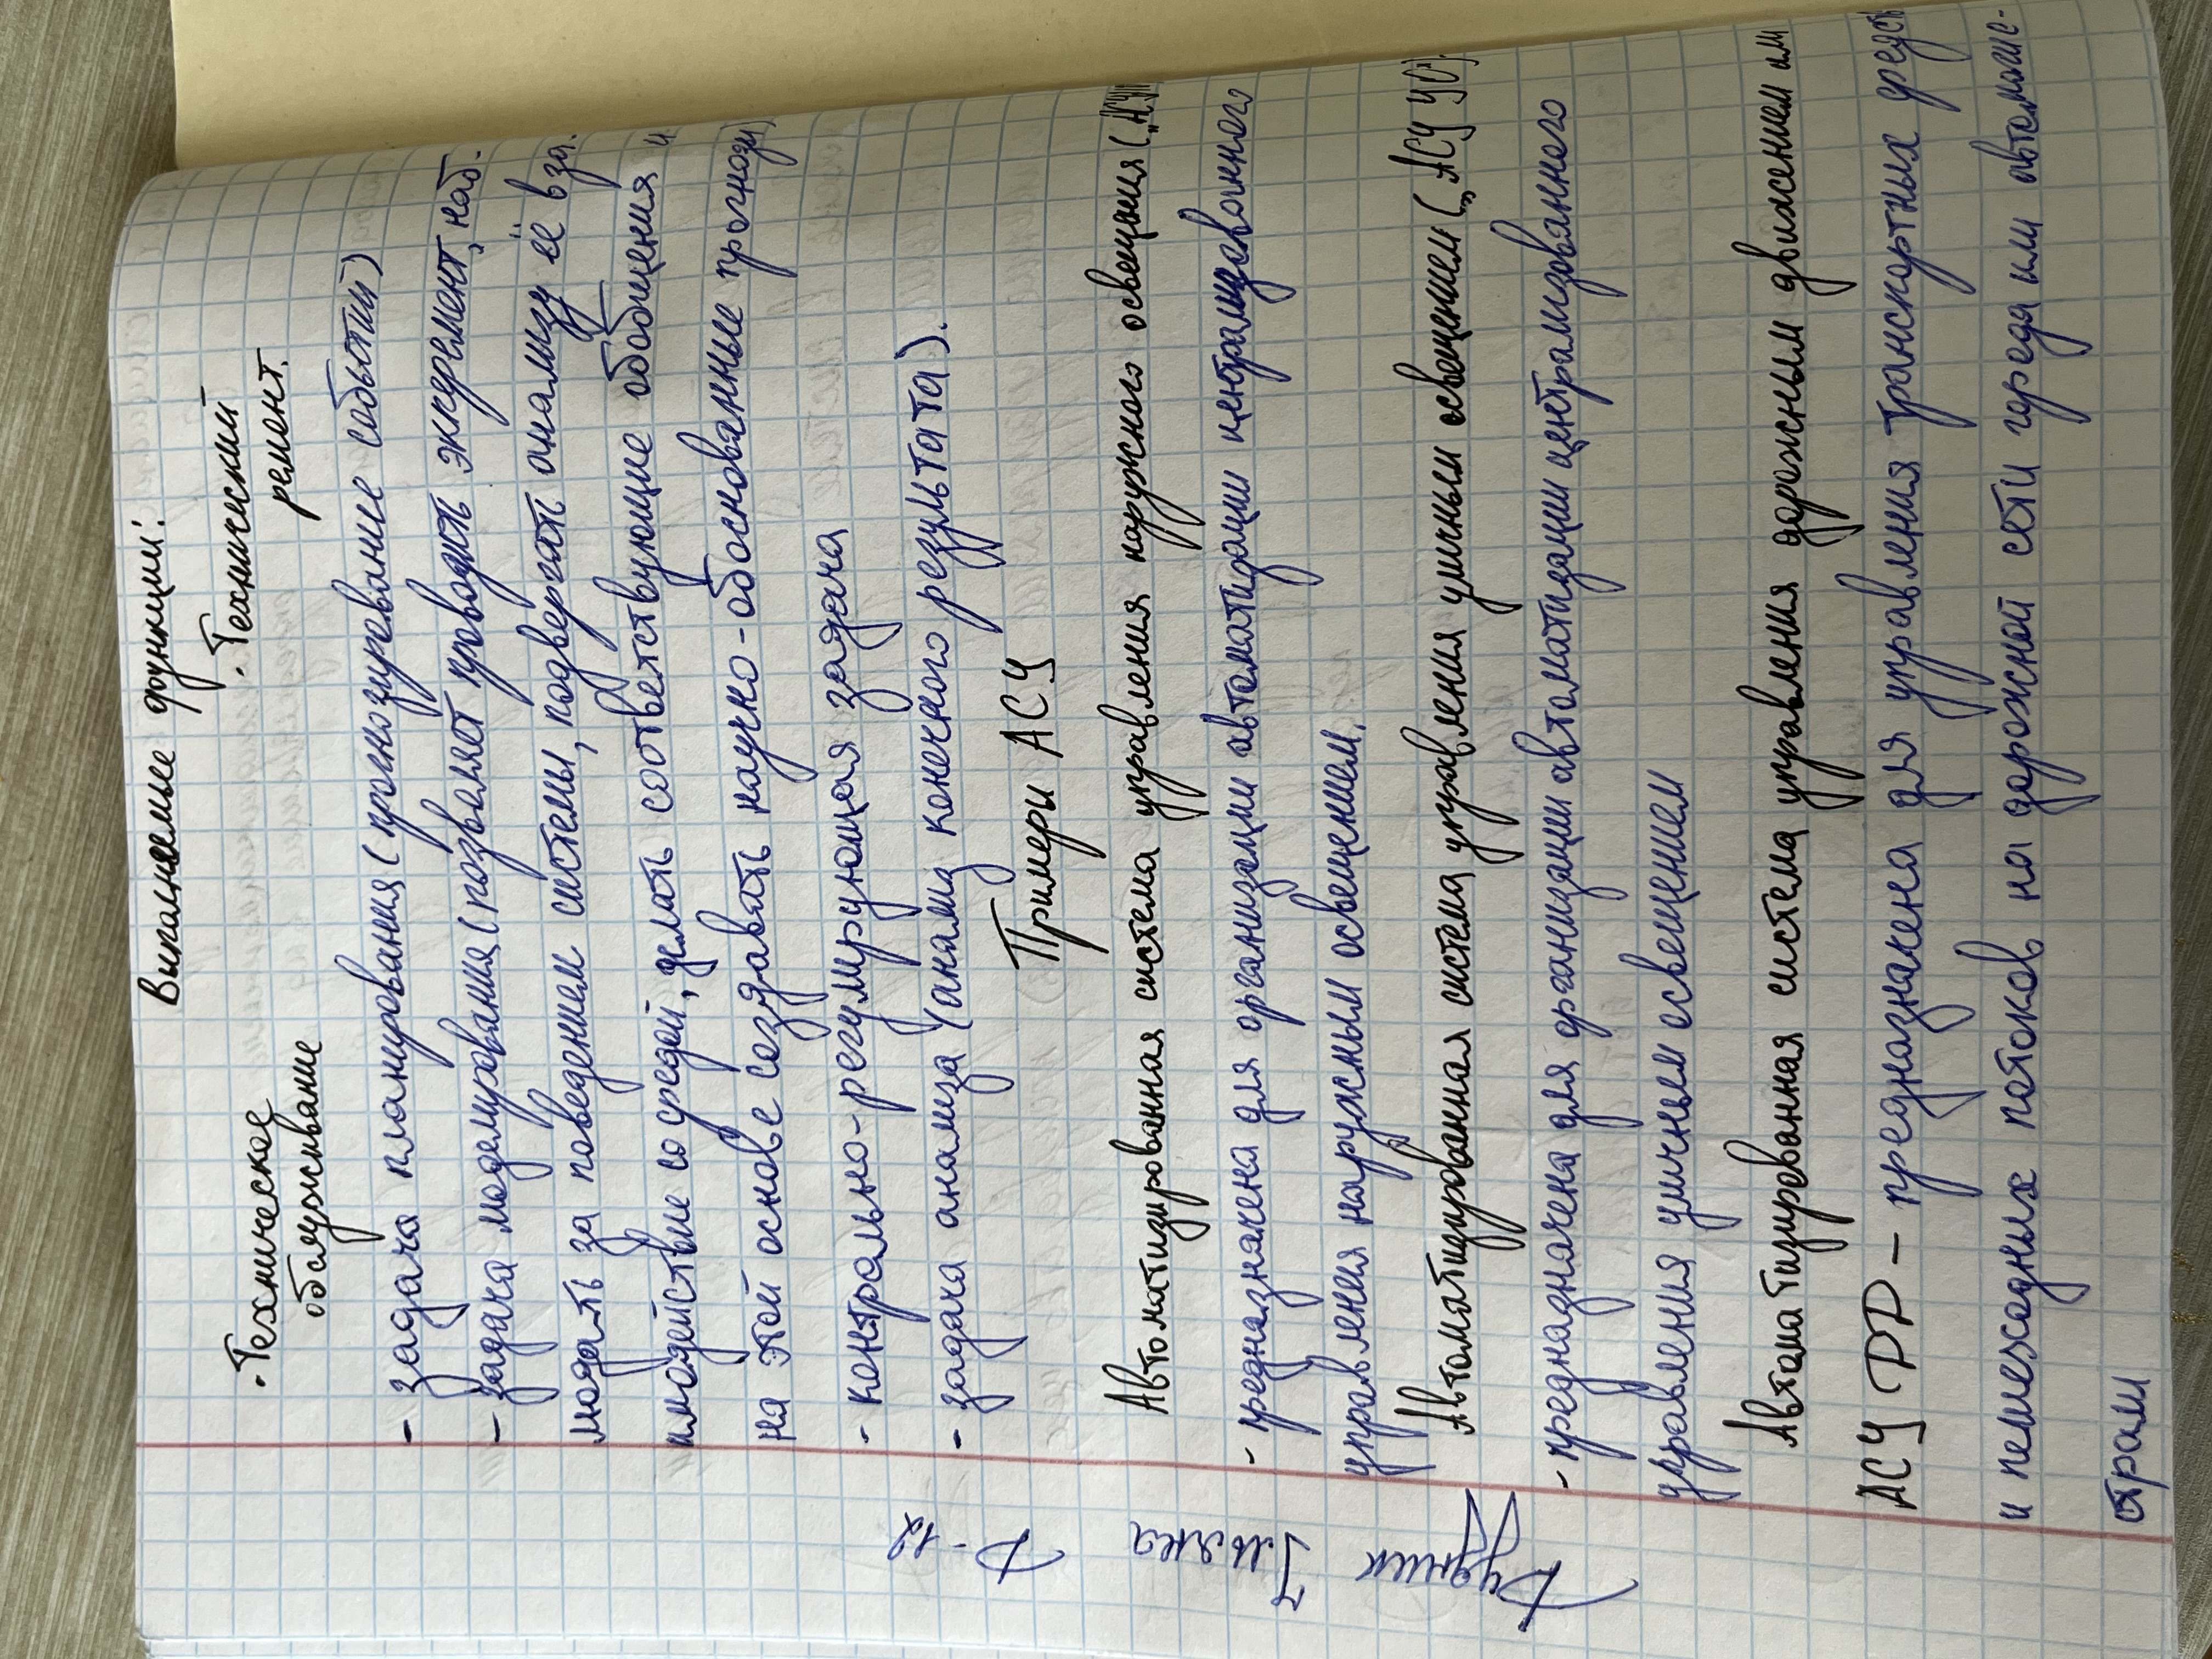 Выполняемые функции:
· Техническое обслуживание
· Технический ремонт.
- задача планирования (прогнозирование событий)
- задача моделирования (позволяют проводить эксперемент, наб.
людать за поведением системы, подвергать анализу её вза.
имодействие со средой, делать соответствующие обобщения и
на этой основе создавать научно-обоснованные прогнозы)
- контрольно-регулирующая задача
- задача анализа (анализ конечного результата).
Примеры АСУ
Автоматизированная система управления наружного освещения („АСУ
- предназначена для организации автоматизации централизованного
управления наружным освещением.
Автоматизированная система управления уличным освещением („АСУ УО").
- предназначена для организации автоматизации централизованного
управления уличным освещением
Автоматизированная система управления дорожным движением или
АСУ DD – предназначена для управления транспортных средств
и пешеходных потоков на дорожной сети города или автомагис-
страли
D-12